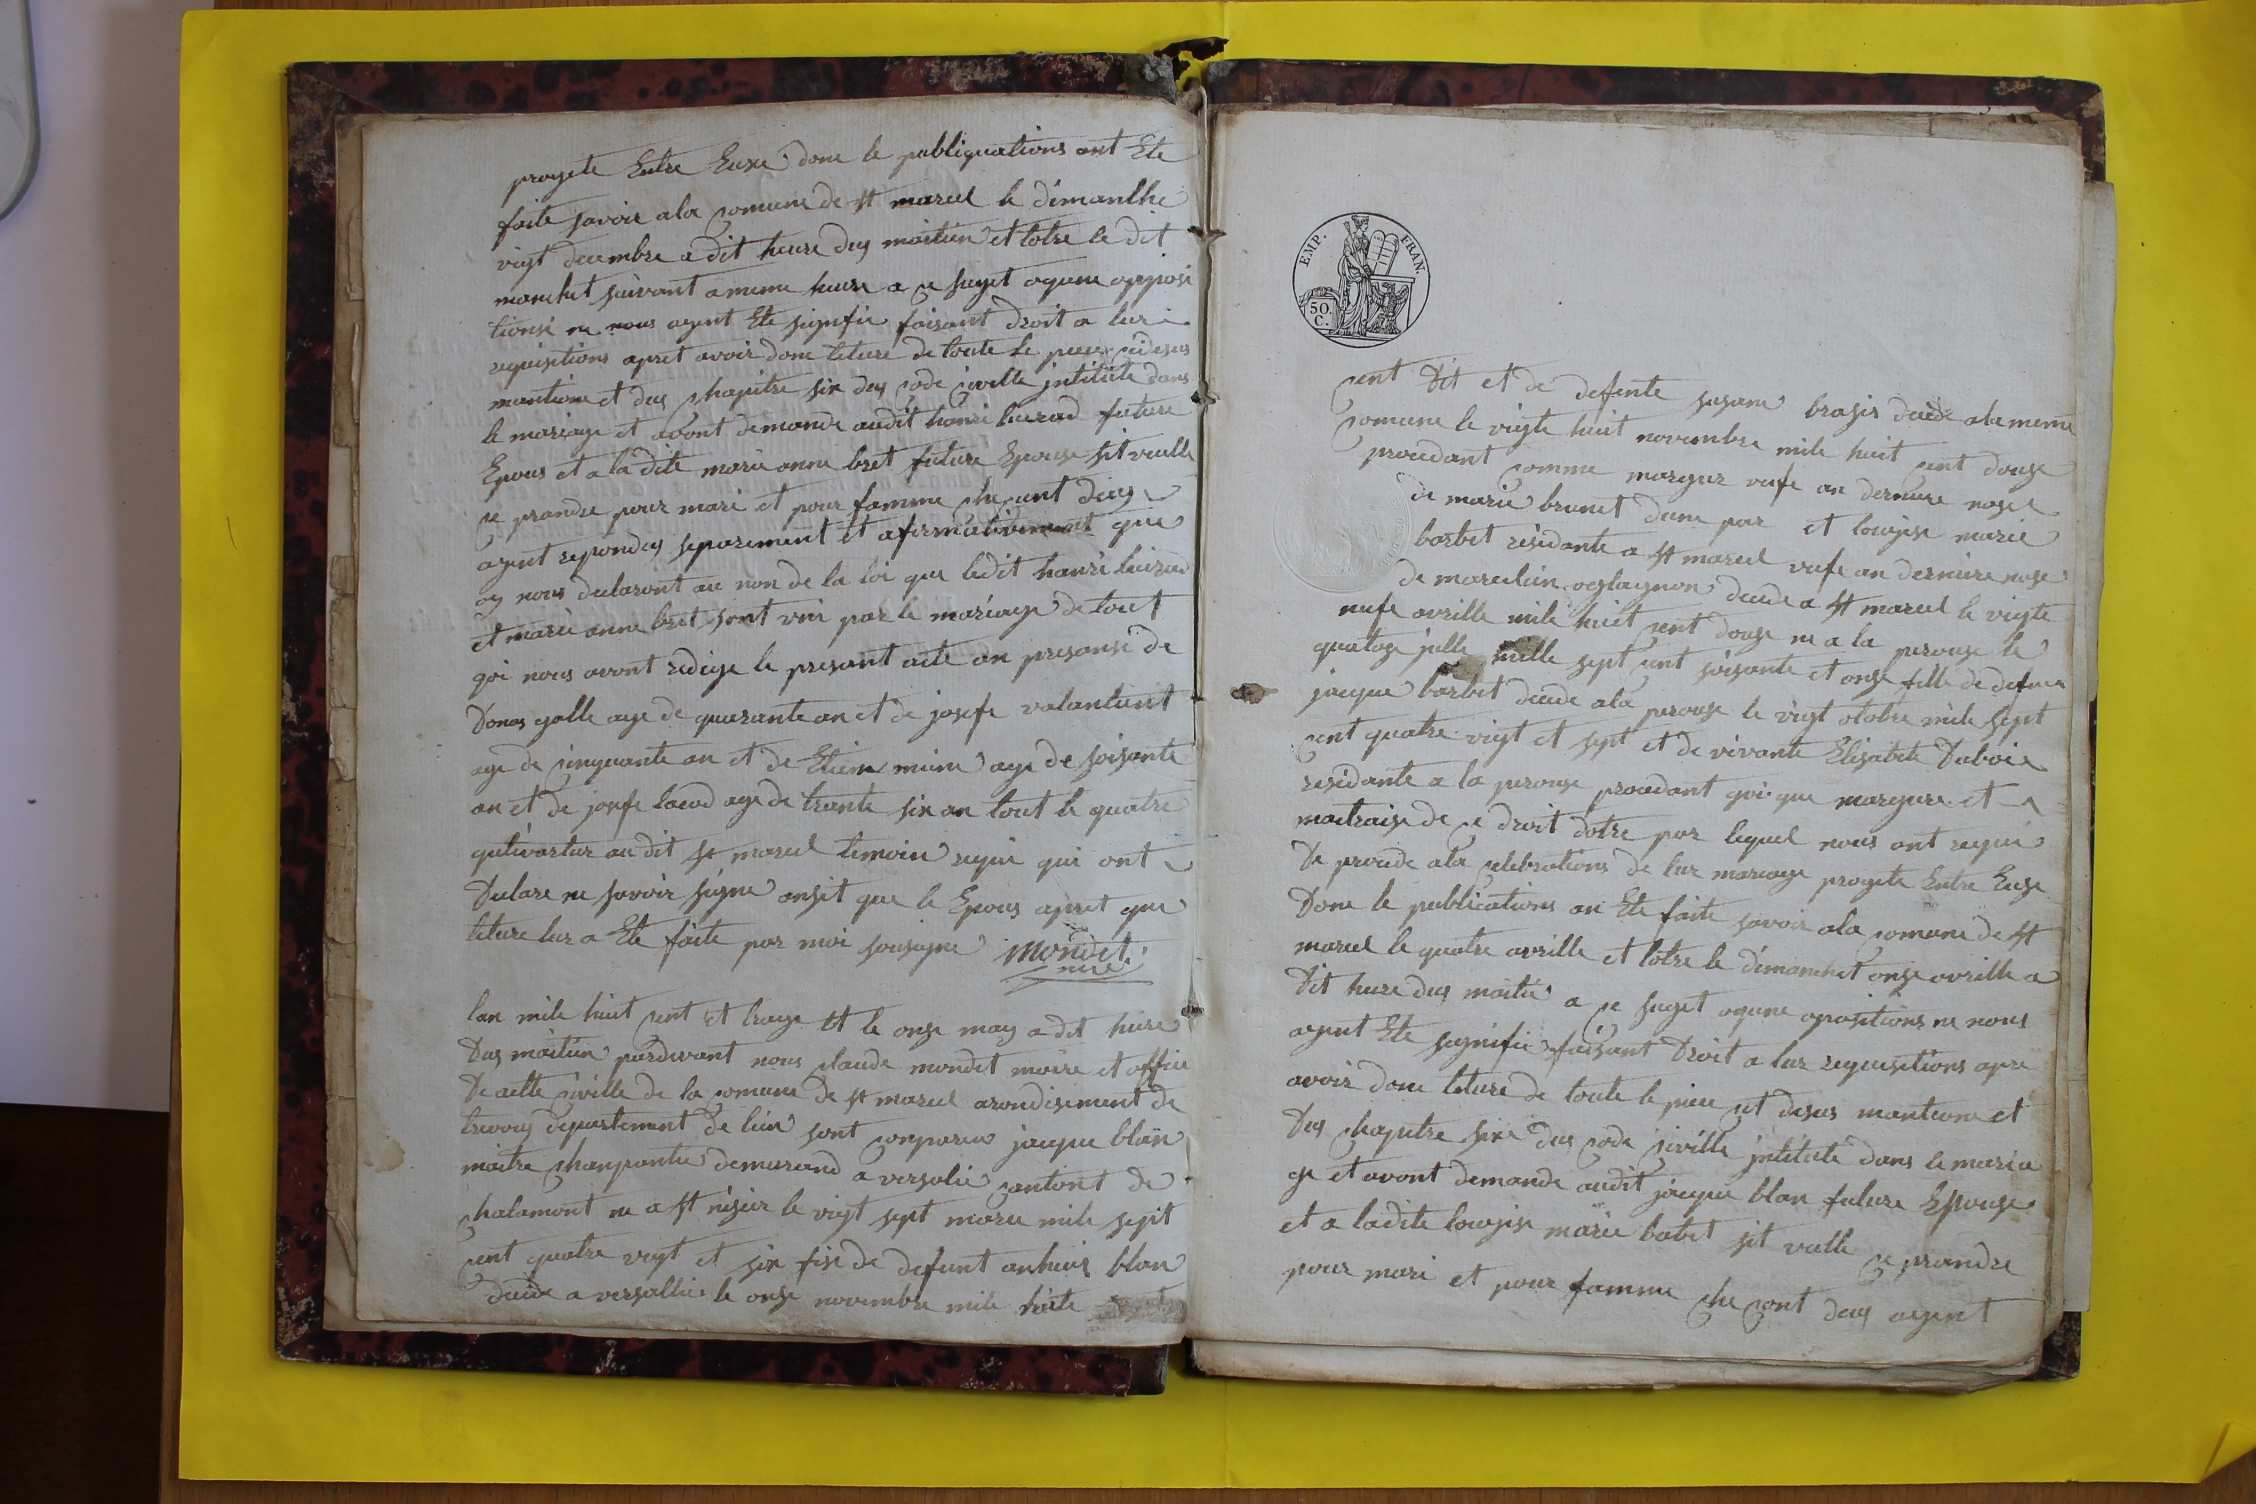 progete Entre Euxe donc le publiquations ont Ete
faite savoir a la comune de st marcel le dimanlhe
vigt decembre a dit heure dus maitien et lotre le dit
manchet suivant a meme heure a ce suget oqune oposi
tionsi ne nous ayent Ete signfie faisant droit a lur
requisitions apret avoir done leture de toute le piece cidesus
mantione et dus chapitre six dus code civille jntitute dans
le mariage et avont demande audit hanri huirad future
Epous et a la dite marie anne bret future Epouse sit veulle
ce prandre pour mari et pour famme che cunt deus
ayent repondus separement et afirmativement que
oy nous declaront au non de la loi que ledit hanri huirad
et marie anne bret sont uni par le mariage de tout
qoi nous avont redige le presant acte an presanse de
Donas galle age de quarante an et de josefe valantient
age de cinquante an et de Etien mune age de soisante
an et de josefe lacod age de trante six an tout le quatre
qultivartur au dit st marcel temoin requi qui ont
Declare ne savoir signe ansit que le Epous apret que
leture lur a Ete faite par moi sousigne mondet
mire
lan mile huit cent et traize et le onze may a dit hure
Dus maitien pardevant nous claude mondet maire et officie
De aitte civille de la comune de st marcel arondisement de
trevous departement de lien sont comparus jacque blan
maitre charpantie demurand a versalie cantont de
chalamont ne a st nisier le vigt sept marce mile sept
cent quatre vigt et six fise de defunt anhuis blan
decede a versallie le onze novembre mile huite
EMP. FRAN.
50.
C.
cent dit et de defente susane brasis decede a la meme
comune le vigte huit novembre mile huit cent douze
procedant comme margur vefe an derniere nose
de marie brunet dune par et louise marie
barbet residante a st marcel vefe an derniere nose
de marcelin decede a st marcel le vigte
nufe avrille mile huit cent douze ne a la perouse le
quatoze jille mille sept cent soisante et onze fille de defun
jacque barbet decede a la perouse le vigt otobre mile sept
cent quatre vigt et sept et de vivante Elisabete Duboie
residante a la perouse procedant qoi que margure et
maitraise de ce droit dotre par lequel nous ont requi
De procede a la celebrations de lur mariage progete Entre Euxe
Done le publications an Ete faite savoir a la comune de st
marcel le quatre avrille et lotre le dimanchet onze avrille a
Dit hure dus maitie a ce suget oqune opositions ne nous
ayent Ete signifie faisant Droit a lur requisitions apre
avoir done leture de toute le piece cit desus mantione et
Dus chapitre sixe dus code civille jntitute dans le maria
ge et avont demande audit jacque blan future Epouse
et a ladite louise marie babet sit veulle ce prandre
pour mari et pour famme che cont deus ayent